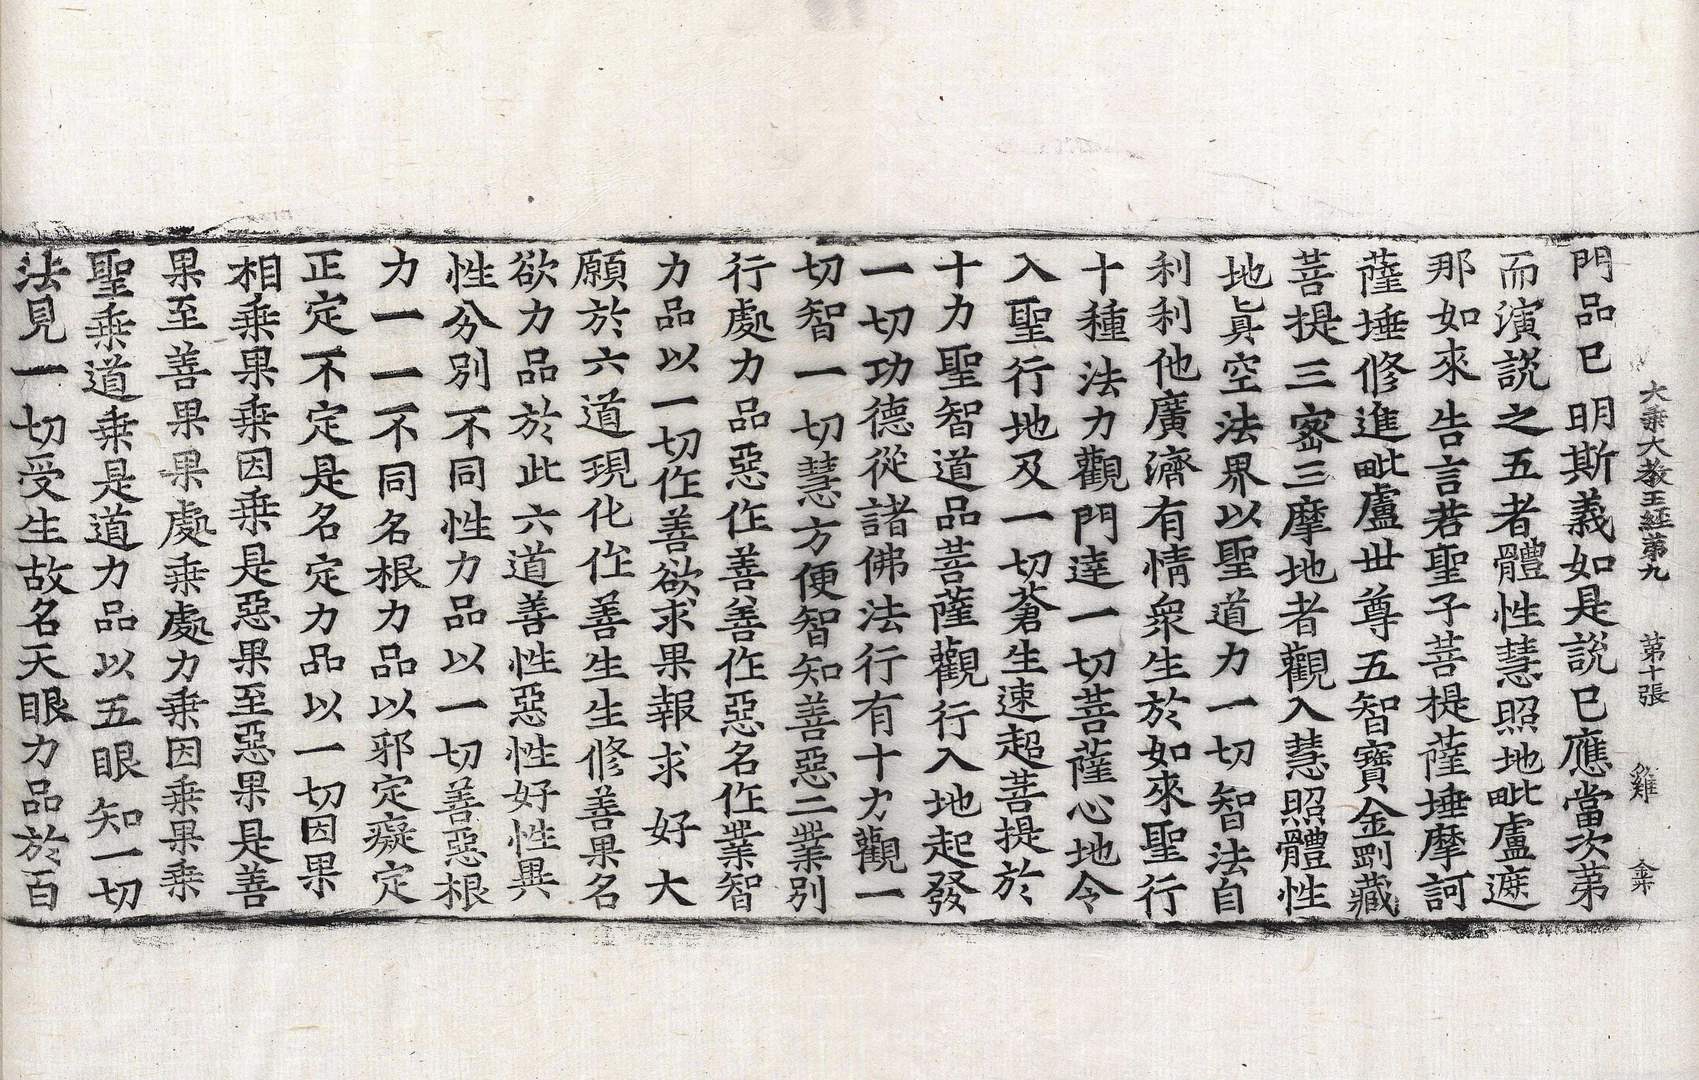 大乘大教王經第九 第十張 雞
門品已明斯義如是說已應當次第
而演說之五者體性慧照地毗盧遮
那如來告言若聖子菩提薩埵摩訶
薩埵修進毗盧世尊五智寶金剛藏
菩提三密三摩地者觀入慧照體性
地眞空法界以聖道力一切智法自
利利他廣濟有情衆生於如來聖行
十種法力觀門達一切菩薩心地令
入聖行地及一切蒼生速超菩提於
十力聖智道品菩薩觀行入地起發
一切功德從諸佛法行有十力觀一
切智一切慧方便智知善惡二業別
行處力品惡作善善作惡名作業智
力品以一切作善欲求果報求好大
願於六道現化作善生生修善果名
欲力品於此六道善性惡性好性異
性分別不同性力品以一切善惡根
力一一不同名根力品以邪定癡定
正定不定是名定力品以一切因果
相乘果乘因乘是惡果至惡果是善
果至善果果處乘處力乘因乘果乘
聖乘道乘是道力品以五眼知一切
法見一切受生故名天眼力品於百